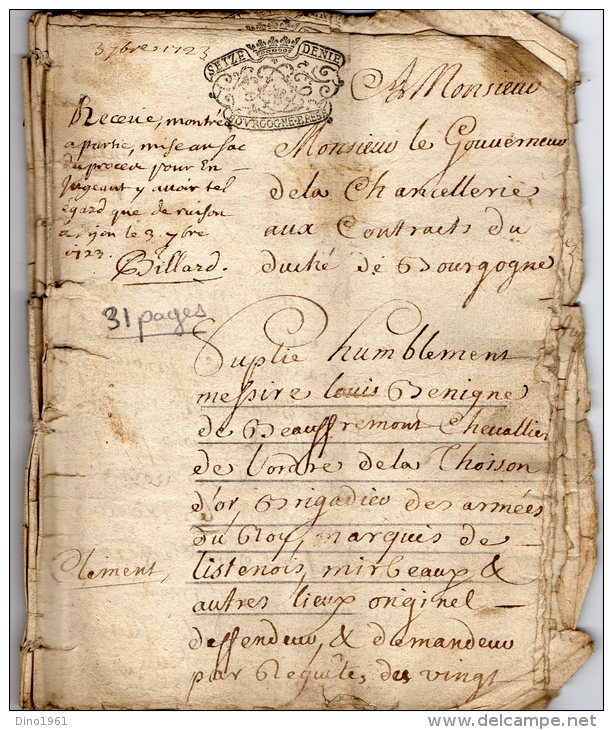 3 7bre 1723
SEIZE DENIE
BOVRGOGNE·BRESSE
A Monsieur
Monsieur le Gouverneur
de la Chancellerie
aux Contracts du
duché de Bourgogne
Receüe, montrée
a partie, mise au sac
du procez pour En
Jugeant y avoir tel
Egard que de raison
a Dijon le 3. 7bre
1723.
Billard.
31 pages
Suplie humblement
messire louis Benigne
de Beauffremont Chevallier
de L'ordre de la Thoison
d'or, Brigadier des armées
du Roy, marquis de
listenois, mirbeaux &
autres lieux originel
deffendeur, & demandeur
par Requête, du vingt
Clement,
Dino1961
www.delcampe.net